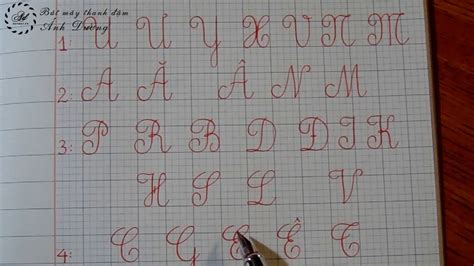 Bút máy thanh đậm
Ánh Dương
1: U Ư Y X V N M
2: A Ă Â N M
3: P R B D Đ I K
H S L V
4: C G E Ê T